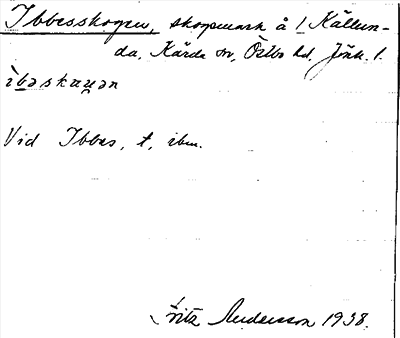 Ibbesskogen, skogsmark å 1 Källun-
da, Kärda sn, Östbo hd, Jönk. l.
ìbəskæuən
Vid Ibbes, t, ibm.
Fritz Andersson 1938.